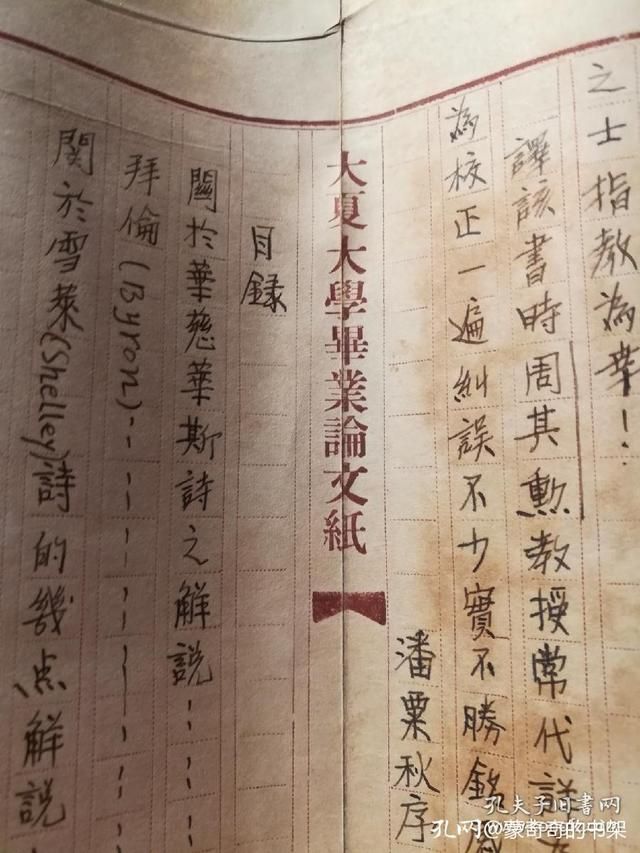 之士指教為幸！
譯該書時周其勳教授常代
為校正一遍糾誤不少實不勝銘感
潘粟秋序
大夏大學畢業論文紙
目錄
關於華慈華斯詩之解説……
拜倫(Byron)……
關於雪萊(Shelley)詩的幾点解説
孔夫子旧书网
孔网@蒙奇奇的书架